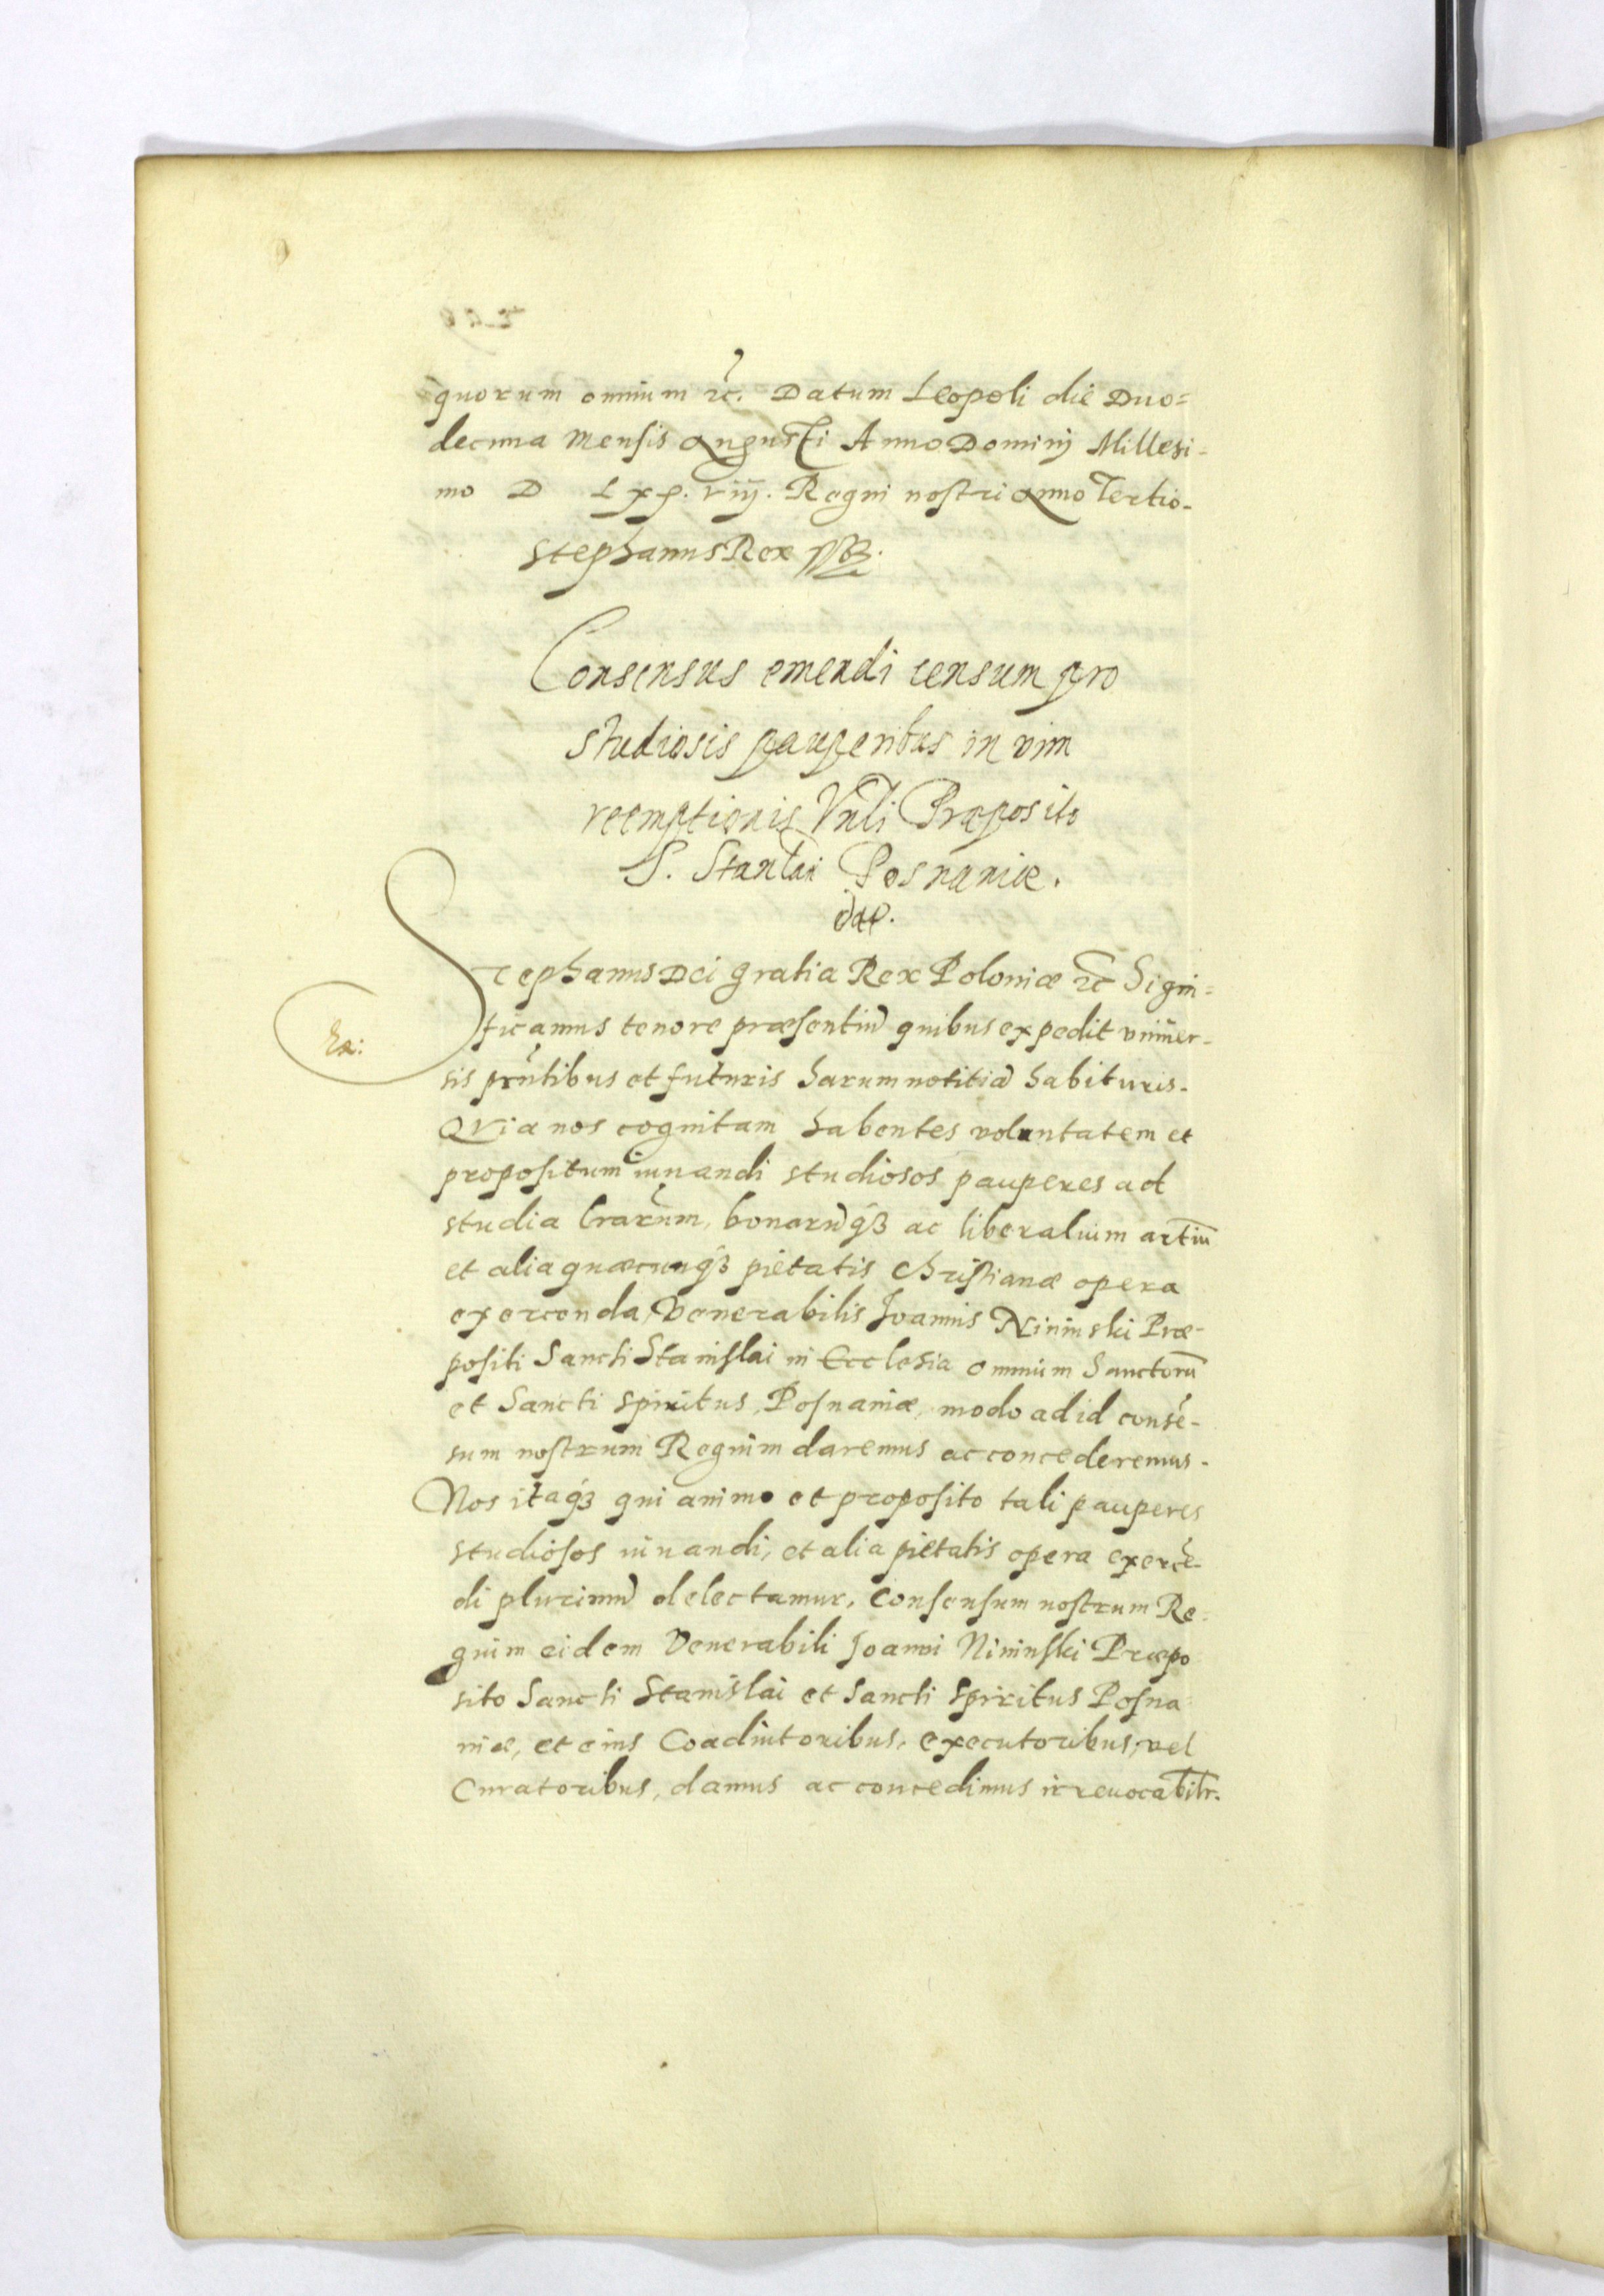 quorum omnium etc. Datum Leopoli die Duo=
decima Mensis Augusti Anno Dominj Millesi-
mo D Lxx. viij. Regni nostri Anno Tertio.
Stephanus Rex
Consensus emendi censum pro
studiosis pauperibus in vim
reemptionis Vnli Præposito
S. Stanlai Posnaniæ.
Stephanus Dei gratia Rex Poloniæ etc Signi-
ficamus tenore præsentiũ quibus expedit vniuer-
Ex:
sis prñtibus et futuris harum notitiã habituris.
Qvia nos cognitam habentes voluntatem et
propositum iuuandi studiosos pauperes ad
studia lrarum, bonarũq₃ ac liberalium artiũ
et alia quæcunq₃ pietatis Christianæ opera
exercenda, Venerabilis Joannis Nininski Præ-
positi Sancti Stanislai in Ecclesia omnium Sanctorũ
et Sancti Spiritus, Posnaniæ, modo ad id consẽ-
sum nostrum Regium daremus ac concederemus.
Nos itaq₃ qui animo et proposito tali pauperes
studiosos iuuandi, et alia pietatis opera exercẽ-
di plurimũ delectamur, Consensum nostrum Re-
gium eidem Venerabili Joanni Nininski Præpo
sito Sancti Stanislai et Sancti Spiritus Posna-
niæ, et eius Coadiutoribus, executoribus, vel
Curatoribus, damus ac concedimus irreuocabilr.